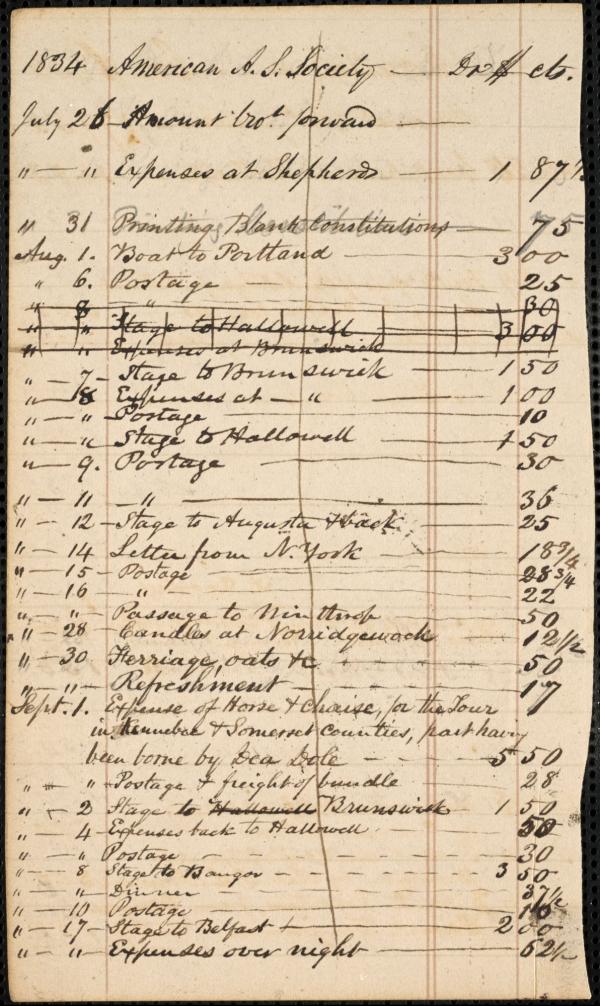 1834 American A. S. Society — Dr $ cts.
July 26 Amount brot forward —
" — " Expenses at Shepherds — 1 87½
" 31 Printing Blank Constitutions 75
Aug. 1. Boat to Portland — 3 00
" 6. Postage — 25
" 8 " — 30
" — " Stage to Hallowell 3 00
" " Expenses at Brunswick
" — 7 — Stage to Brunswick — 1 50
" — 8 Expenses at — " — 1 00
" — " Postage — 10
" — " Stage to Hallowell — 1 50
" — 9. Postage — 30
" — 11 — " — 36
" — 12 — Stage to Augusta & back — 25
" — 14 Letter from N. York — 18 3/4
" — 15 — Postage — 28 3/4
" — 16 " — 22
" — " Passage to Winthrop 50
" — 28 — Candles at Norridgewock 12 1/2
" — 30 Ferriage, oats &c - - - - 50
" — " Refreshment — 17
Sept. 1. Expense of Horse & Chaise, for the Tour
in Kennebec & Somerset Counties, part having
been borne by Dea Dole - - - 5 50
" — " — Postage & freight of bundle 28
" — 2 Stage to Hallowell Brunswick — 1 50
" — 4 — Expenses back to Hallowell - 50
" — " Postage - - - - - - 30
" — 8 Stage to Bangor - - - - 3 50
" — " — Dinner — 37 1/2
" — 10 Postage 10
" — 17 — Stage to Belfast — 2 00
" — " — Expenses over night — 62 1/2